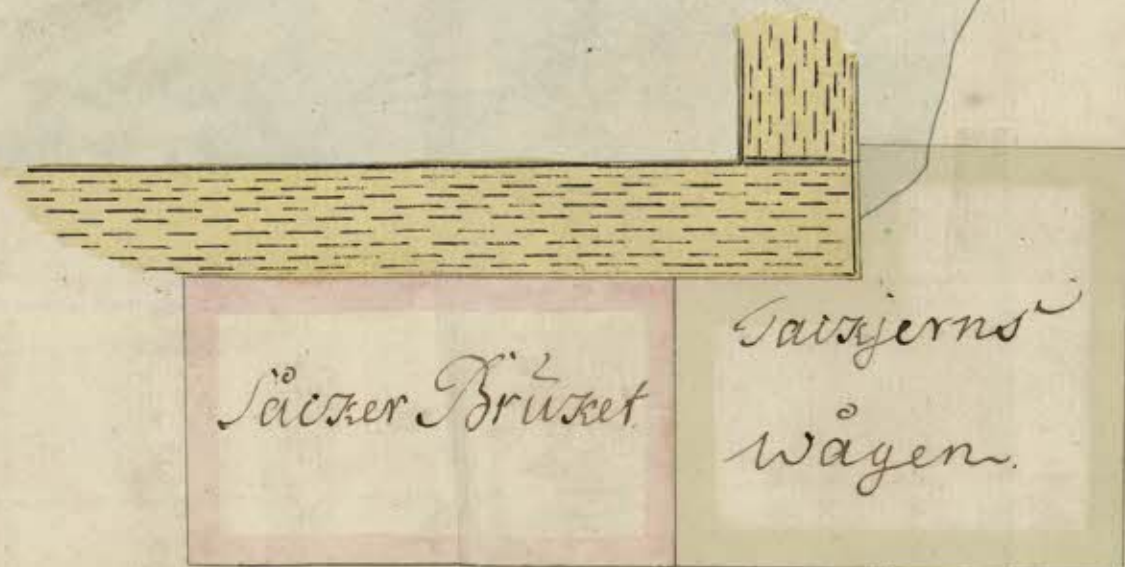 Såcker Brüket
Tackjerns
Wågen.